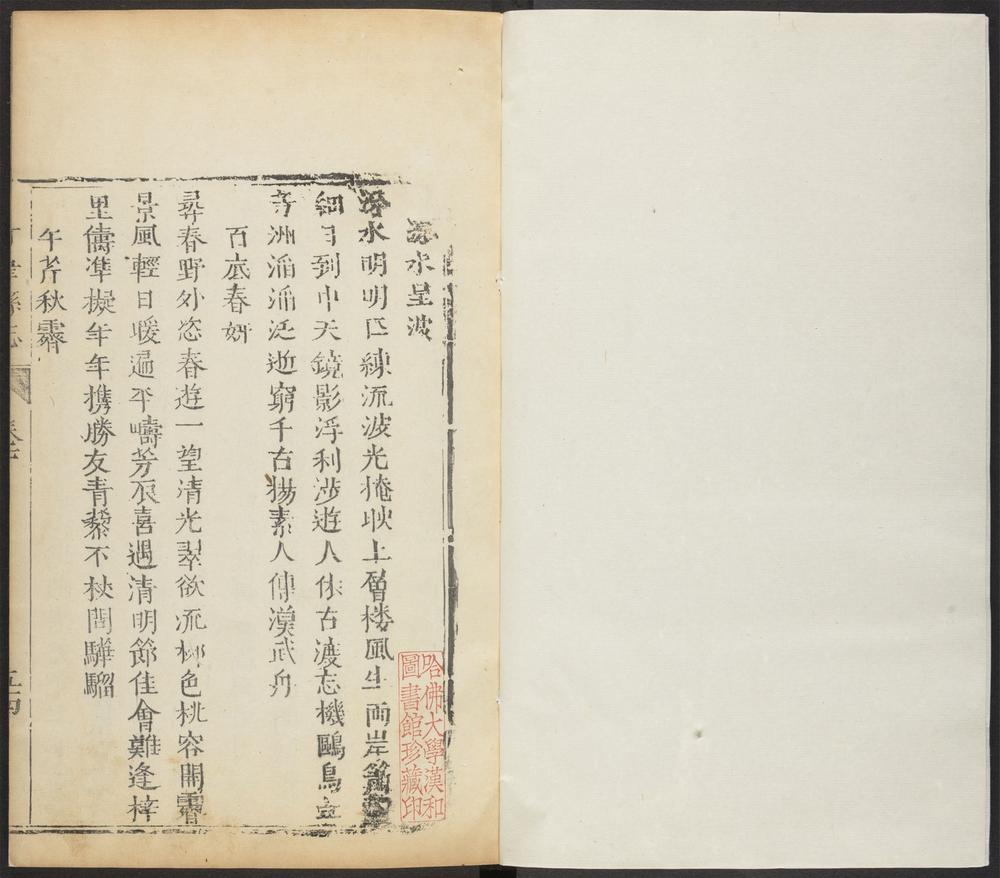 水呈波
水明明匹練流波光掩映上層楼風生両岸
細月到中天鏡影浮利涉遊人休古渡忘機鷗鳥立
洲滔滔泛逝窮千古揚素人傳漢武舟
百底春妍
尋春野外恣春遊一望清光翠欲流柳色桃容開霽
景風輕日暖遍平疇芳辰喜遇清明節佳會難逢梓
里儔準擬年年携勝友青藜不杖問驊騮
午芹秋霽
縣志
五四
哈佛大學漢和
圖書館珍藏印